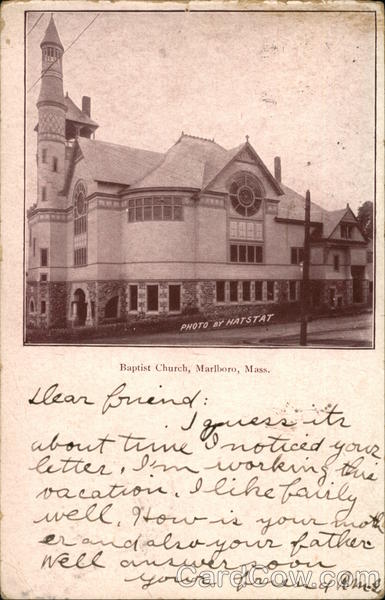 PHOTO BY HATSTAT
Baptist Church, Marlboro, Mass.
Dear friend:
I guess its
about time I noticed your
letter. I'm working this
vacation. I like fairly
well. How is your moth
er and also your father
Well answer soon
Your friend
CardCow.com